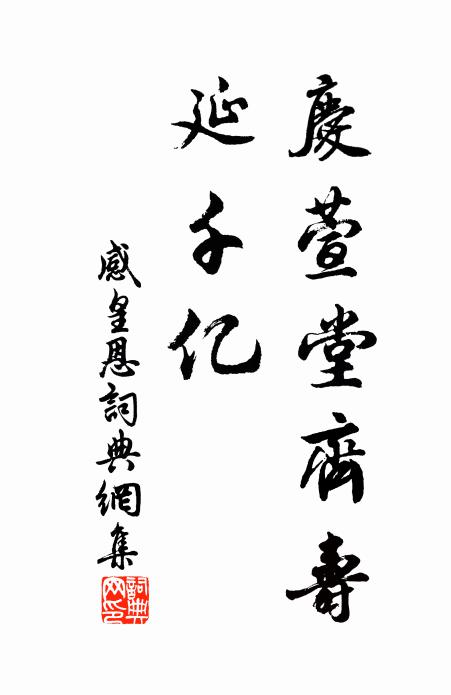 慶萱堂齊壽
延千亿
感皇恩詞典網集
詞典网印